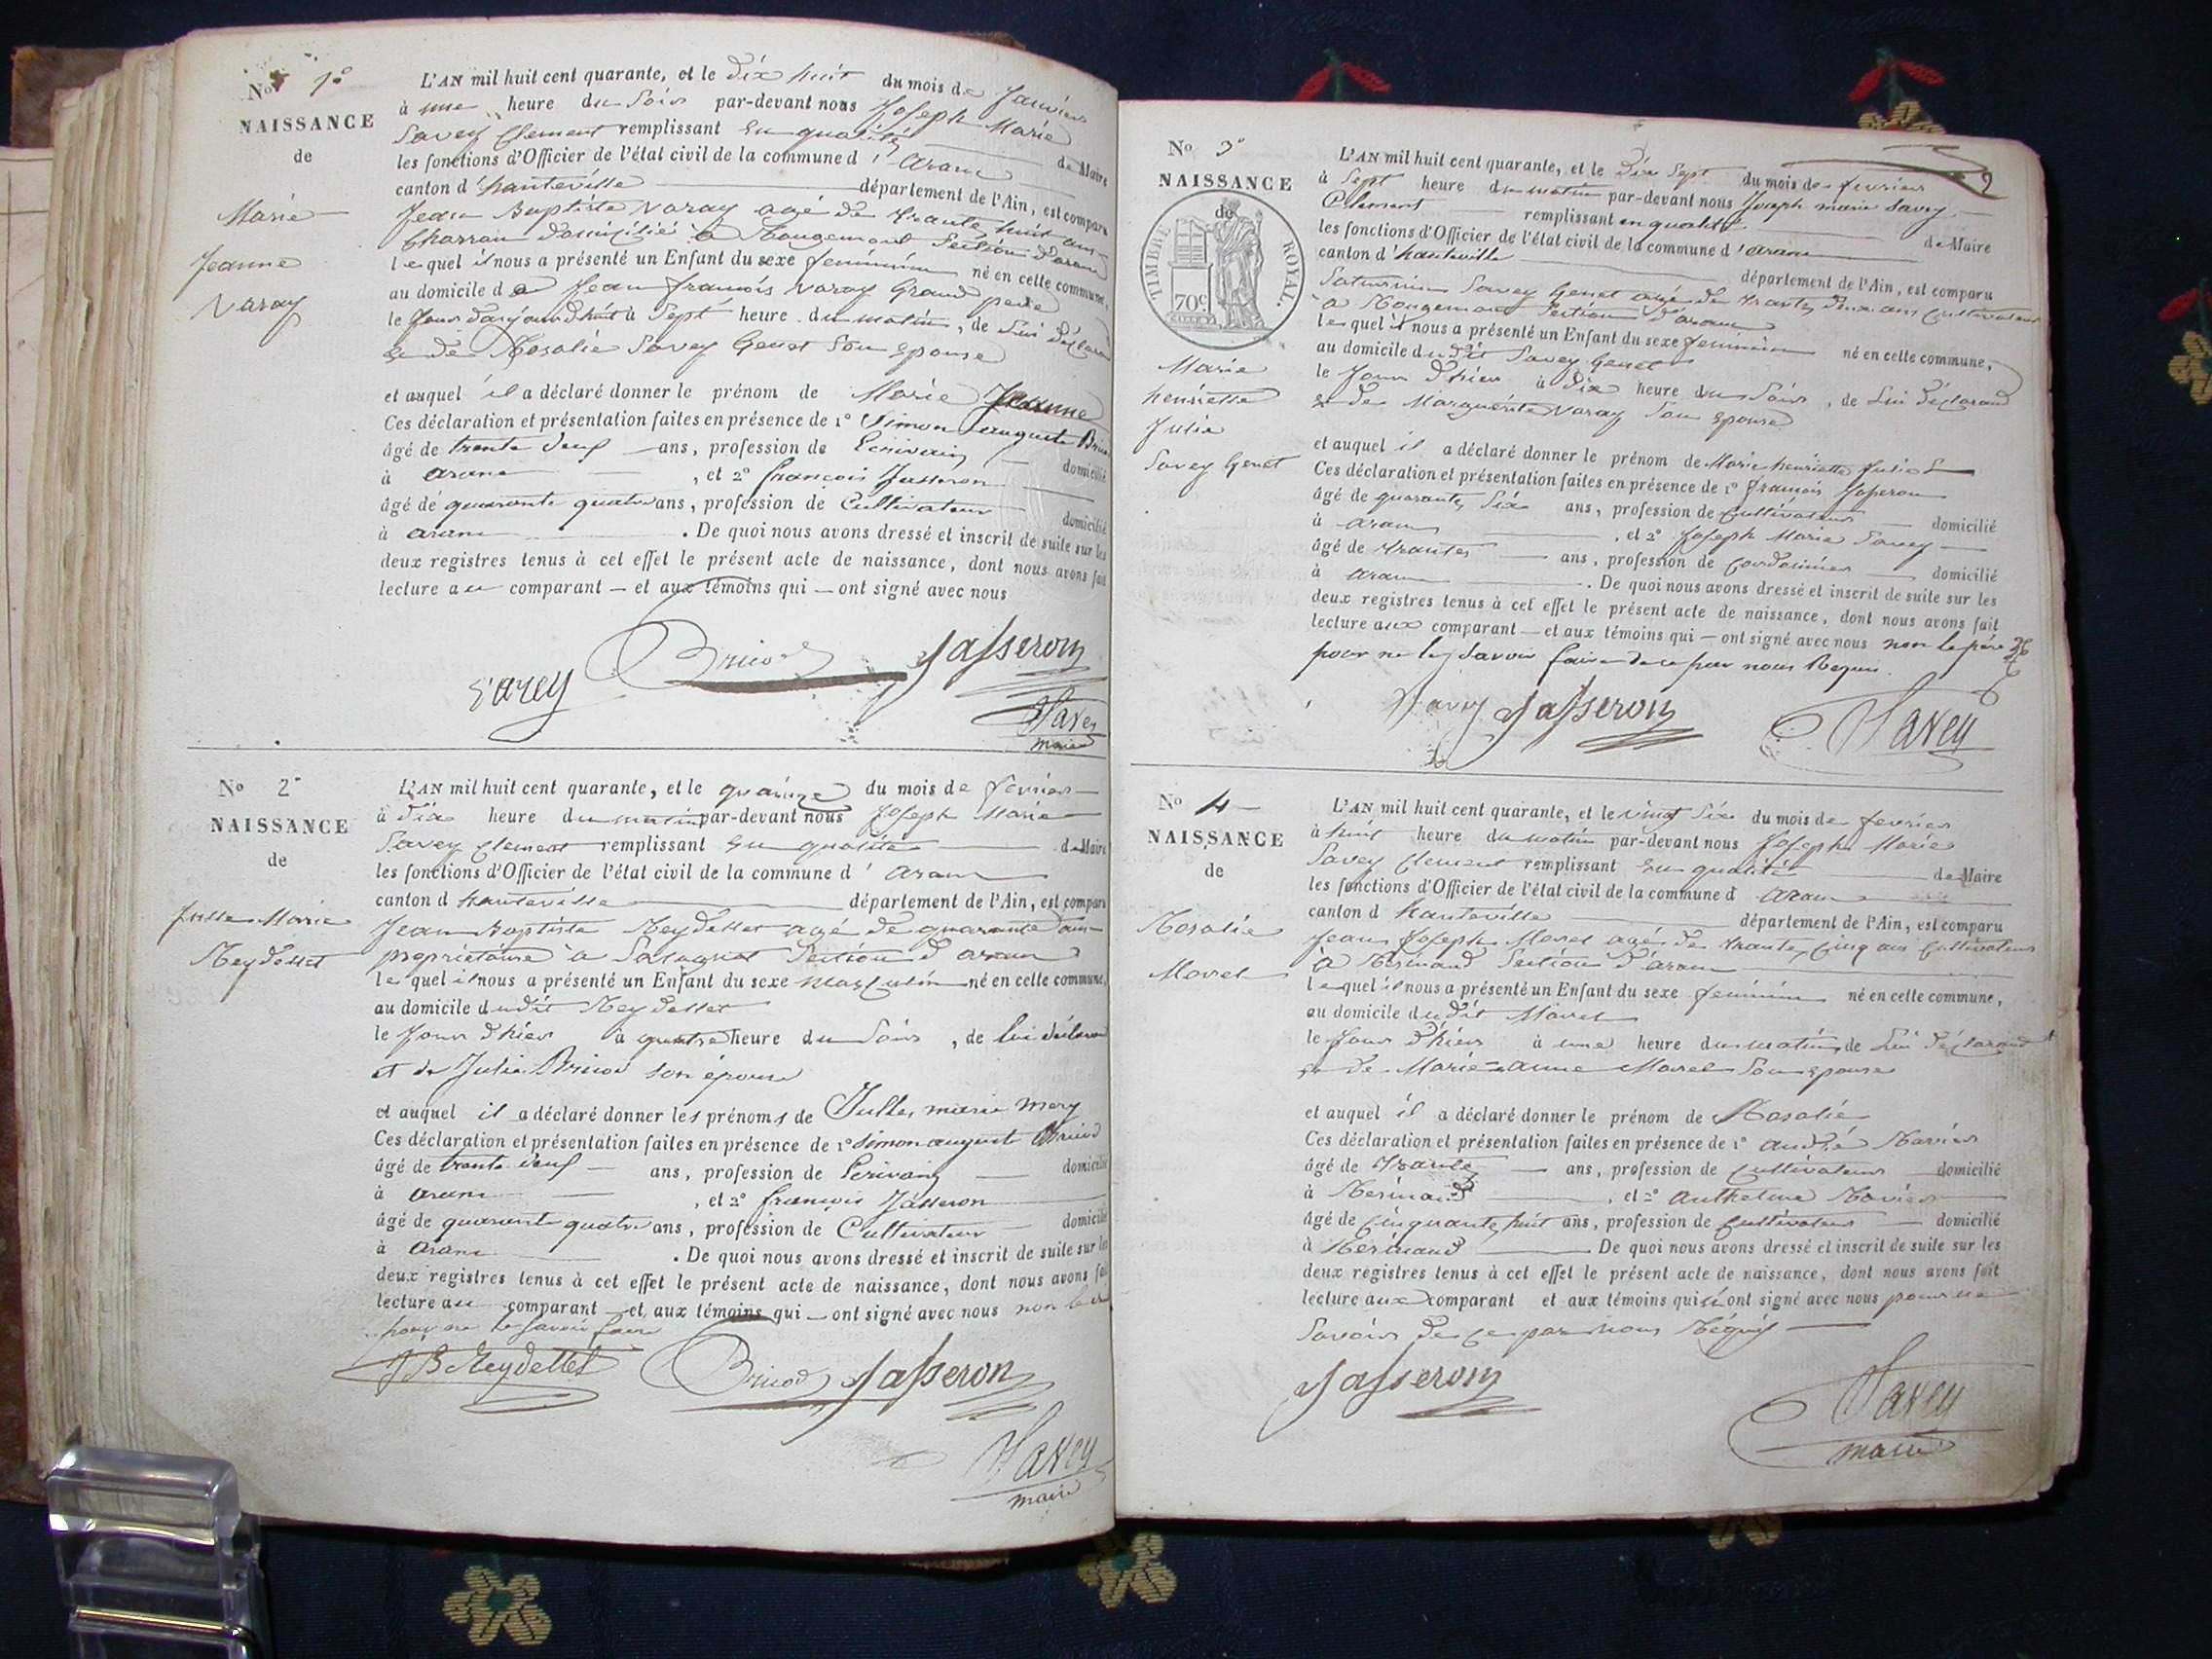 No 1o
NAISSANCE
de
Marie
Jeanne
Varay
L'AN mil huit cent quarante, et le dix huit du mois de Janvier
à une heure du Soir par-devant nous Joseph Marie
Savey Clement remplissant en qualité de Maire
les fonctions d'Officier de l'état civil de la commune d'aranc
canton d'hauteville département de l'Ain, est comparu
Jean Baptiste Varay agé de trante huit ans
Charron domicilié à Rougemont Section d'aranc
lequel il nous a présenté un Enfant du sexe feminin né en cette commune,
au domicile de Jean françois Varay Grand père
le Jour d'aujourd'hui à Sept heure du matin, de Lui déclarant
et de Rosalie Savey Genet Son epouse
et auquel il a déclaré donner le prénom de Marie Jeanne
Ces déclaration et présentation faites en présence de 1o Simon auguste
âgé de trente neuf ans, profession de Ecrivain domicilié
à aranc, et 2o françois Jasseron
âgé de quarante quatre ans, profession de Cultivateur domicilié
à aranc. De quoi nous avons dressé et inscrit de suite sur les
deux registres tenus à cet effet le présent acte de naissance, dont nous avons fait
lecture au comparant — et aux témoins qui — ont signé avec nous
Varey Brucod Jasseron
Savey
maire
No 2o
NAISSANCE
de
Marie
Reydellet
L'AN mil huit cent quarante, et le quainze du mois de fevrier
à dix heure du matin par-devant nous Joseph Marie
Savey Clement remplissant en qualité de Maire
les fonctions d'Officier de l'état civil de la commune d'aranc
canton d hauteville département de l'Ain, est comparu
Jean Baptiste Reydellet agé de quarante ans
propriétaire à Section d aranc
lequel il nous a présenté un Enfant du sexe masculin né en cette commune,
au domicile dudit Reydellet
le Jour d'hier à quatre heure du Soir, de lui déclarant
et de Julie son épouse
et auquel il a déclaré donner les prénoms de Julles marie
Ces déclaration et présentation faites en présence de 1o Simon auguste
âgé de trente neuf ans, profession de Ecrivain domicilié
à aranc, et 2o françois Jasseron
âgé de quarante quatre ans, profession de Cultivateur domicilié
à aranc. De quoi nous avons dressé et inscrit de suite sur les
deux registres tenus à cet effet le présent acte de naissance, dont nous avons fait
lecture au comparant — et aux témoins qui — ont signé avec nous
pour ne le savoir faire
JB Reydellet Jasseron
Savey
maire
No 3o
NAISSANCE
de
TIMBRE ROYAL.
70c
Marie
henriette
Julie
Savey Genet
L'AN mil huit cent quarante, et le dix Sept du mois de fevrier
à Sept heure du matin par-devant nous Joseph marie Savey
Clement remplissant en qualité de Maire
les fonctions d'Officier de l'état civil de la commune d'aranc
canton d'hauteville département de l'Ain, est comparu
Saturnin Savey Genet agé de trante deux ans Cultivateur
à Rougemont Section d'aranc
lequel il nous a présenté un Enfant du sexe feminin né en cette commune,
au domicile dudit Savey Genet
le Jour d'hier à dix heure du Soir, de Lui déclarant
et de Marguerite Varay Son epouse
et auquel il a déclaré donner le prénom de Marie henriette Julie
Ces déclaration et présentation faites en présence de 1o françois Jasseron
âgé de quarante Six ans, profession de Cultivateur domicilié
à aranc, et 2o Joseph Marie Savey
âgé de trante ans, profession de Cordonnier domicilié
à aranc. De quoi nous avons dressé et inscrit de suite sur les
deux registres tenus à cet effet le présent acte de naissance, dont nous avons fait
lecture aux comparant — et aux témoins qui — ont signé avec nous non le père
pour ne le Savoir faire de ce par nous Requis.
Savey Jasseron Savey
No 4
NAISSANCE
de
Rosalie
Morel
L'AN mil huit cent quarante, et le vingt Six du mois de fevrier
à huit heure du matin par-devant nous Joseph Marie
Savey Clement remplissant en qualité de Maire
les fonctions d'Officier de l'état civil de la commune d aranc
canton d hauteville département de l'Ain, est comparu
Jean Joseph Morel agé de trante Cinq ans Cultivateur
à Résinand Section d'aranc
lequel il nous a présenté un Enfant du sexe feminin né en cette commune,
au domicile dudit Morel
le Jour d'hier à une heure du matin, de Lui déclarant
et de Marie-anne Morel Son epouse
et auquel il a déclaré donner le prénom de Rosalie
Ces déclaration et présentation faites en présence de 1o andré
âgé de trante ans, profession de Cultivateur domicilié
à Résinand, et 2o
âgé de Cinquante huit ans, profession de Cultivateur domicilié
à Résinand. De quoi nous avons dressé et inscrit de suite sur les
deux registres tenus à cet effet le présent acte de naissance, dont nous avons fait
lecture aux comparant et aux témoins qui ont signé avec nous pour ne
Savoir de ce par nous Réquis
Jasseron
Savey
maire